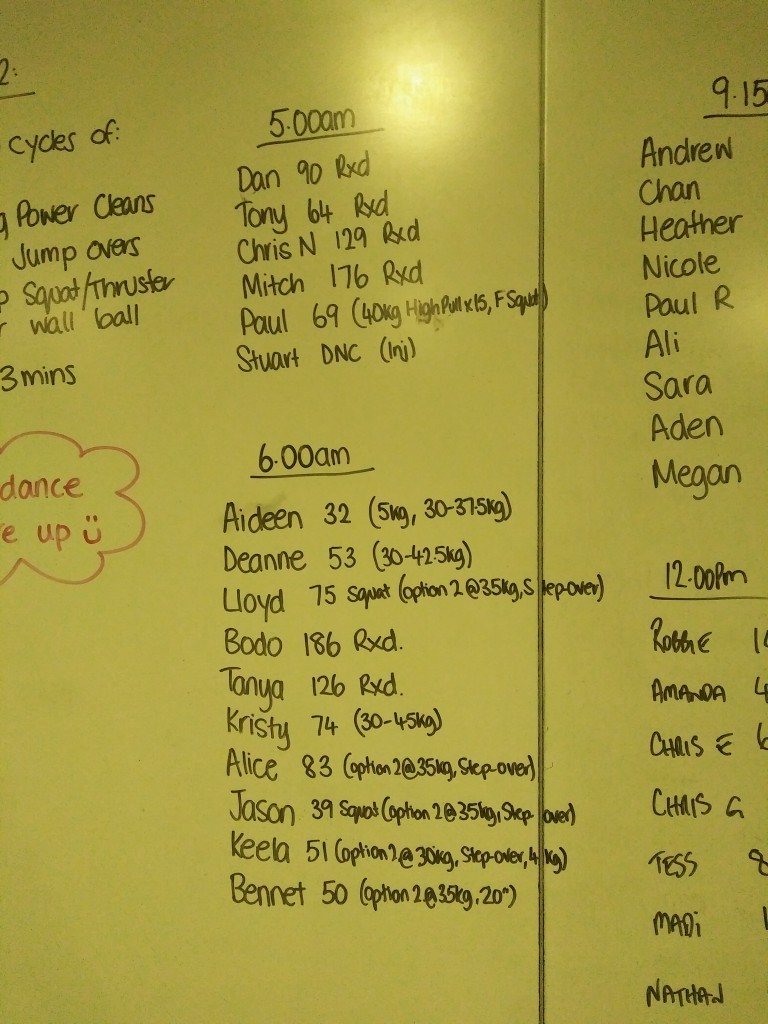 2:
cycles of:
Power Cleans
Jump overs
Squat/Thruster
wall ball
3 mins
dance
up
5.00am
Dan 90 Rxd
Tony 64 Rxd
Chris N 129 Rxd
Mitch 176 Rxd
Paul 69 (40kg High Pull x15, F Squat)
Stuart DNC (Inj)
6.00am
Aideen 32 (5kg, 30-37.5kg)
Deanne 53 (30-42.5kg)
Lloyd 75 Squat (option 2 @35kg, Step-over)
Bodo 186 Rxd.
Tanya 126 Rxd.
Kristy 74 (30-45kg)
Alice 83 (option 2@35kg, Step-over)
Jason 39 Squat (option 2@35kg, Step over)
Keela 51 (option 2@30kg, Step-over, 4kg)
Bennet 50 (option 2@35kg, 20")
9.15
Andrew
Chan
Heather
Nicole
Paul R
Ali
Sara
Aden
Megan
12.00pm
ROBBIE
AMANDA 4
CHRIS E 6
CHRIS G
TESS 8
MADi
NATHAN